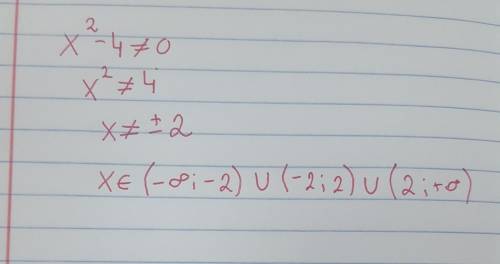 x² - 4 ≠ 0
x² ≠ 4
x ≠ ± 2
x ∈ (-∞; -2) ∪ (-2; 2) ∪ (2; +∞)